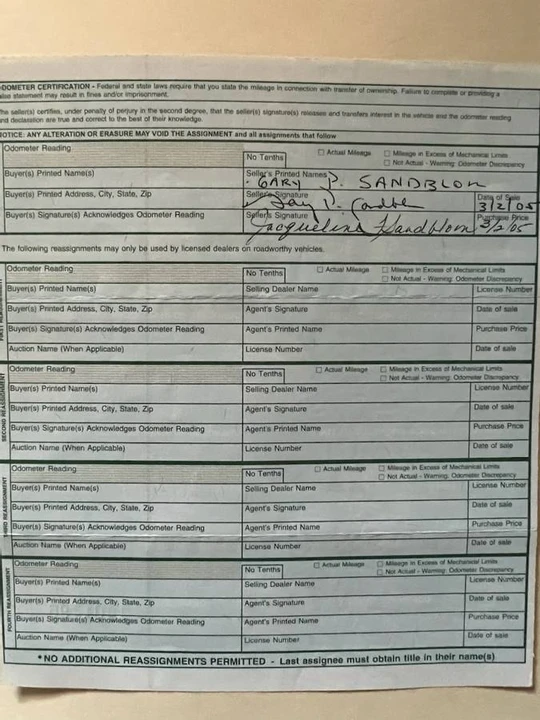 ODOMETER CERTIFICATION - Federal and state laws require that you state the mileage in connection with transfer of ownership. Failure to complete or providing a
false statement may result in fines and/or imprisonment.
The seller(s) certifies, under penalty of perjury in the second degree, that the seller(s) signature(s) releases and transfers interest in the vehicle and the odometer reading
and declaration are true and correct to the best of their knowledge.
NOTICE: ANY ALTERATION OR ERASURE MAY VOID THE ASSIGNMENT and all assignments that follow
Odometer Reading No Tenths Actual Mileage Mileage in Excess of Mechanical Limits
Not Actual - Warning: Odometer Discrepancy
Buyer(s) Printed Name(s) Seller's Printed Names
GARY P. SANDBLOM
Buyer(s) Printed Address, City, State, Zip Seller's Signature Date of Sale
3/2/05
Buyer(s) Signature(s) Acknowledges Odometer Reading Seller's Signature Purchase Price
Jacqueline Sandblom 3/2/05
The following reassignments may only be used by licensed dealers on roadworthy vehicles.
FIRST REASSIGNMENT
Odometer Reading No Tenths Actual Mileage Mileage in Excess of Mechanical Limits
Not Actual - Warning: Odometer Discrepancy
Buyer(s) Printed Name(s) Selling Dealer Name License Number
Buyer(s) Printed Address, City, State, Zip Agent's Signature Date of sale
Buyer(s) Signature(s) Acknowledges Odometer Reading Agent's Printed Name Purchase Price
Auction Name (When Applicable) License Number Date of sale
SECOND REASSIGNMENT
Odometer Reading No Tenths Actual Mileage Mileage in Excess of Mechanical Limits
Not Actual - Warning: Odometer Discrepancy
Buyer(s) Printed Name(s) Selling Dealer Name License Number
Buyer(s) Printed Address, City, State, Zip Agent's Signature Date of sale
Buyer(s) Signature(s) Acknowledges Odometer Reading Agent's Printed Name Purchase Price
Auction Name (When Applicable) License Number Date of sale
THIRD REASSIGNMENT
Odometer Reading No Tenths Actual Mileage Mileage in Excess of Mechanical Limits
Not Actual - Warning: Odometer Discrepancy
Buyer(s) Printed Name(s) Selling Dealer Name License Number
Buyer(s) Printed Address, City, State, Zip Agent's Signature Date of sale
Buyer(s) Signature(s) Acknowledges Odometer Reading Agent's Printed Name Purchase Price
Auction Name (When Applicable) License Number Date of sale
FOURTH REASSIGNMENT
Odometer Reading No Tenths Actual Mileage Mileage in Excess of Mechanical Limits
Not Actual - Warning: Odometer Discrepancy
Buyer(s) Printed Name(s) Selling Dealer Name License Number
Buyer(s) Printed Address, City, State, Zip Agent's Signature Date of sale
Buyer(s) Signature(s) Acknowledges Odometer Reading Agent's Printed Name Purchase Price
Auction Name (When Applicable) License Number Date of sale
*NO ADDITIONAL REASSIGNMENTS PERMITTED - Last assignee must obtain title in their name(s)